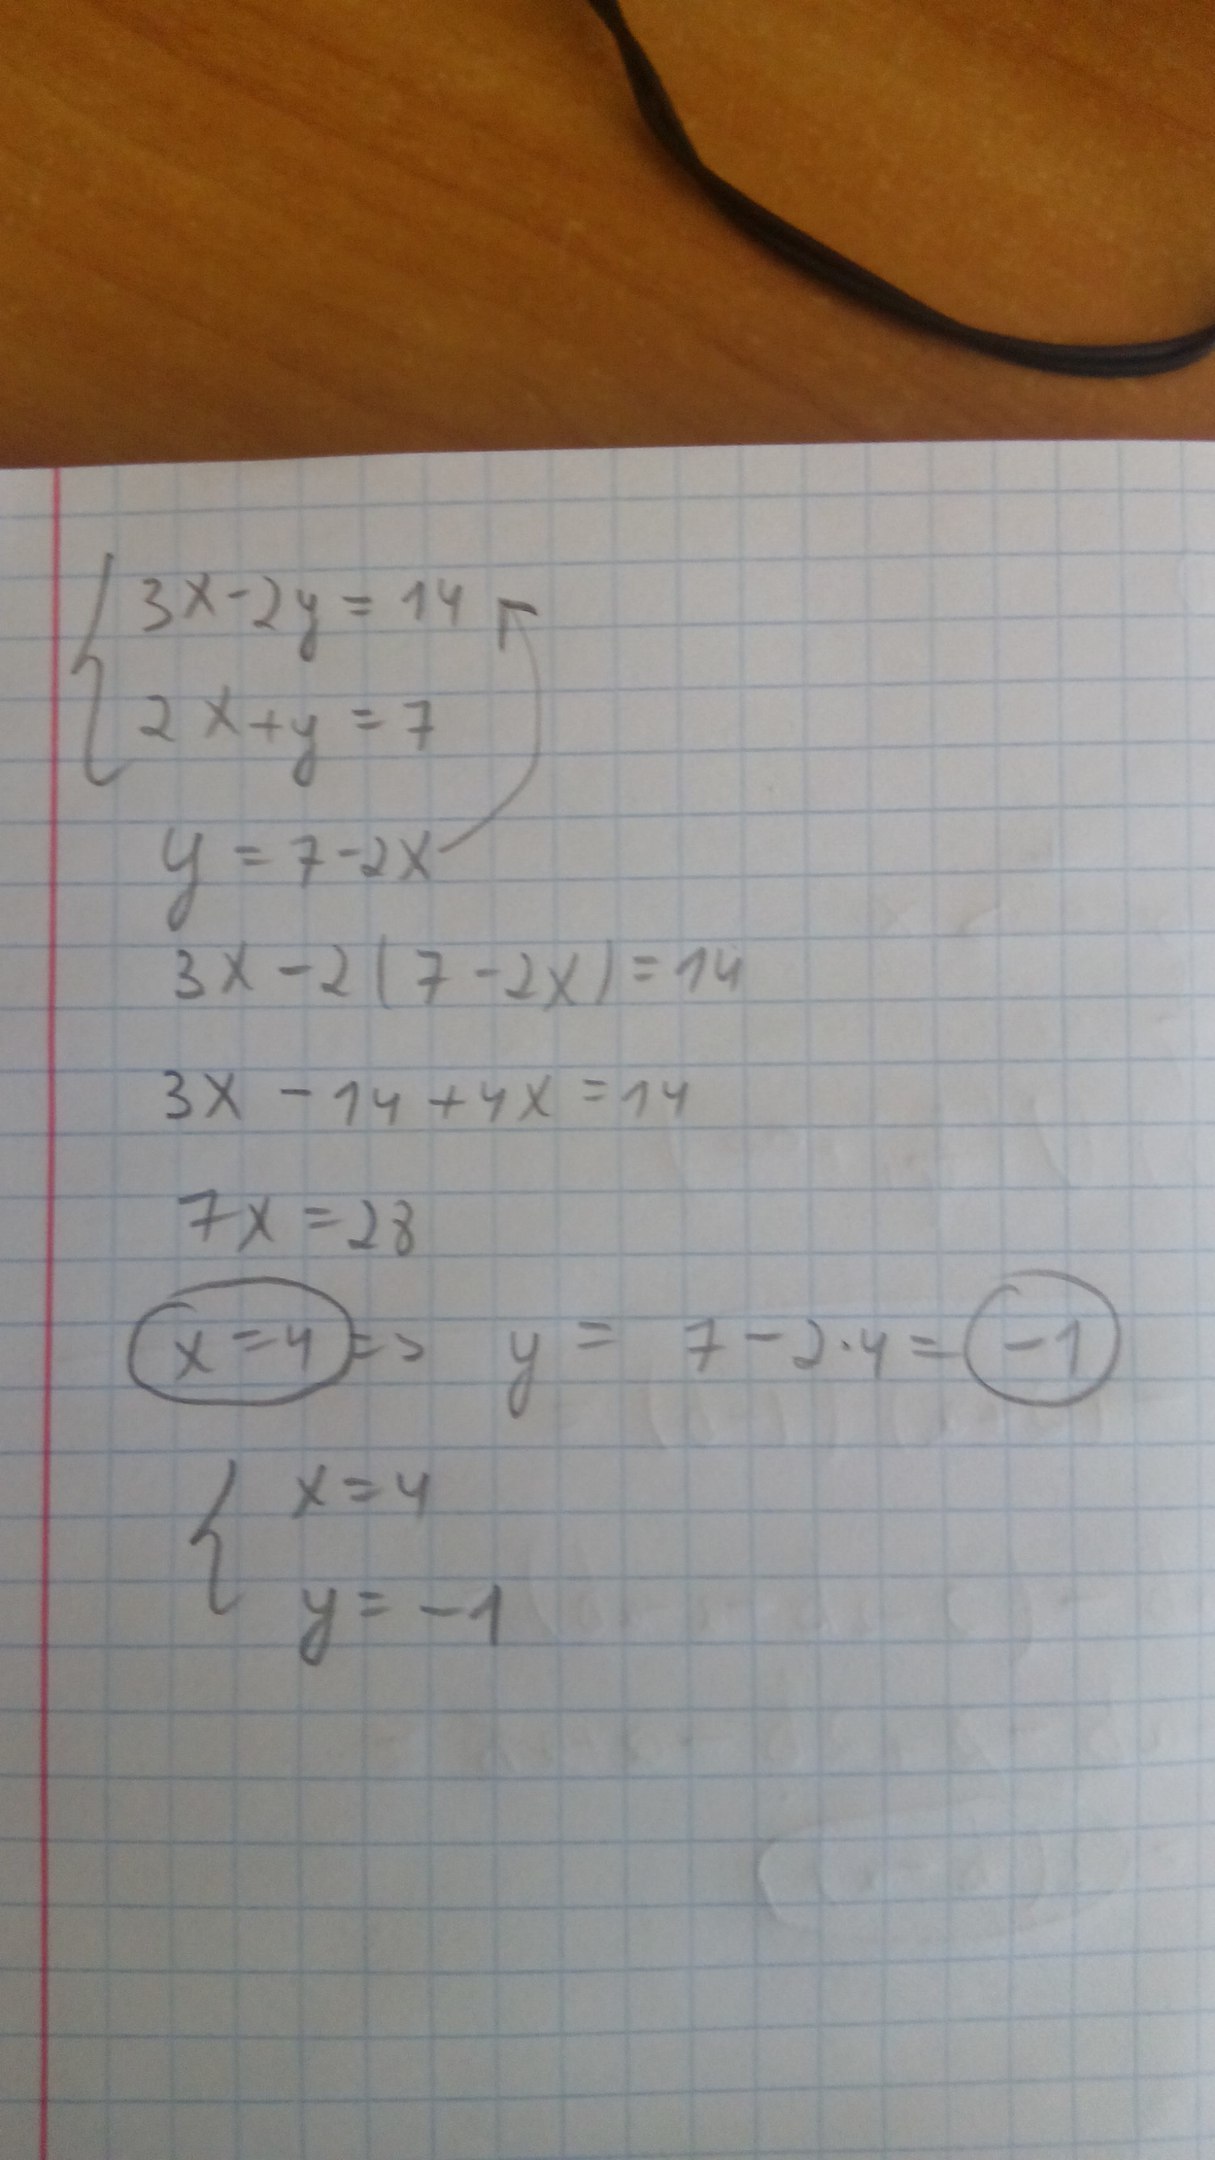 3x-2y=14
2x+y=7
y=7-2x
3x-2(7-2x)=14
3x-14+4x=14
7x=28
x=4=> y=7-2·4=-1
x=4
y=-1